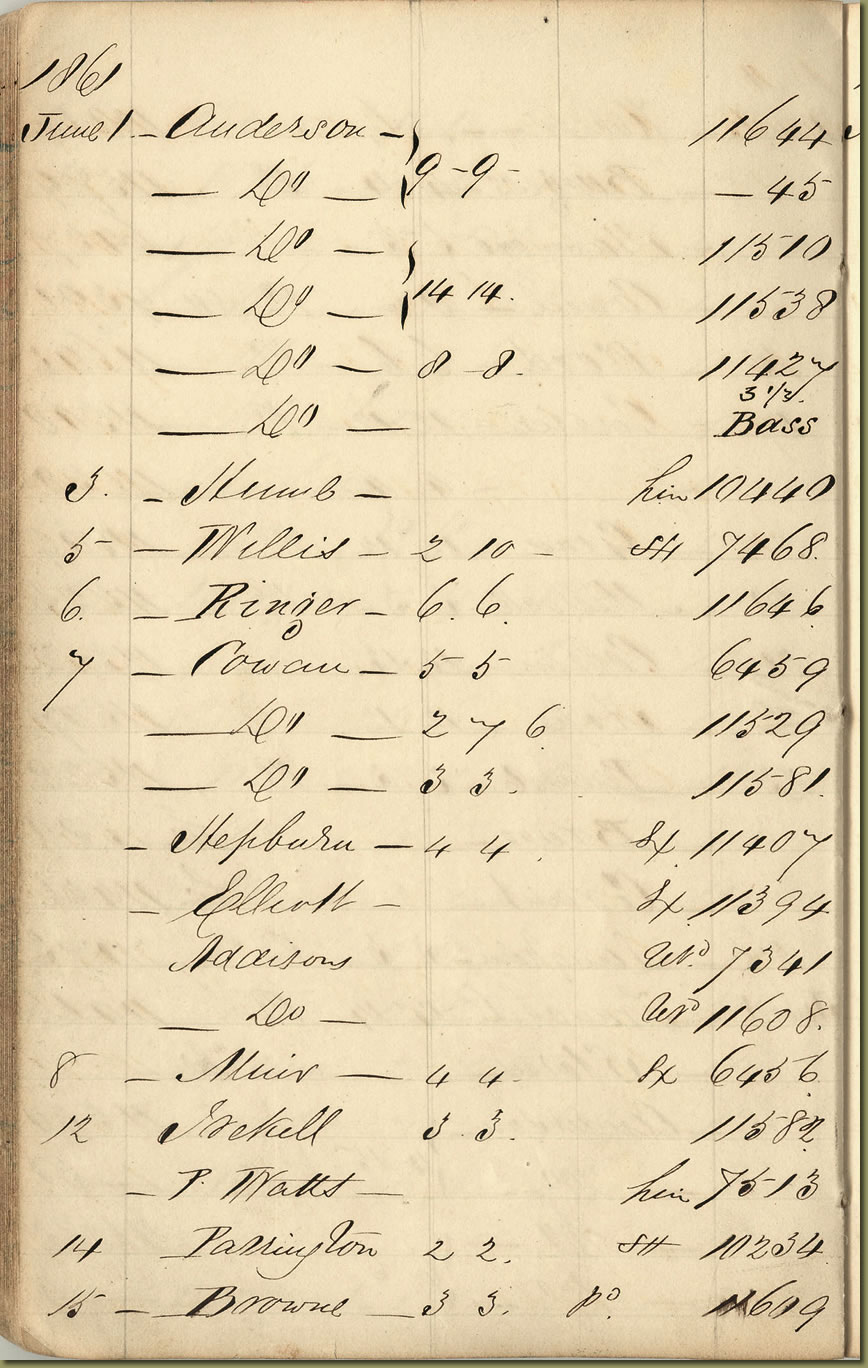 1861
June 1 - Anderson - } 9-9- 11644
— Do — - 45
— Do — } 14 14. 11510
— Do — 11538
— Do — 8 - 8. 11427
3 1/2.
— Do — Bass
3. - - 10440
5 — Willis - 2 10 - 7468.
6. - Ringer - 6. 6. 11646
7 - Cowan - 5 5 6459
— Do — 2 7 6 11529
— Do — 3 3. 11581.
- Hepburn - 4 4. 11407
- Elliott - 11394
Addisons 7341
— Do — 11608.
8 - Muir — 4 4. 6456
12 3. 3. 11582
- P. Watts — 7513
14 Parrington 2 2. 10234
15 - Browne — 3 3. Pd. 11609